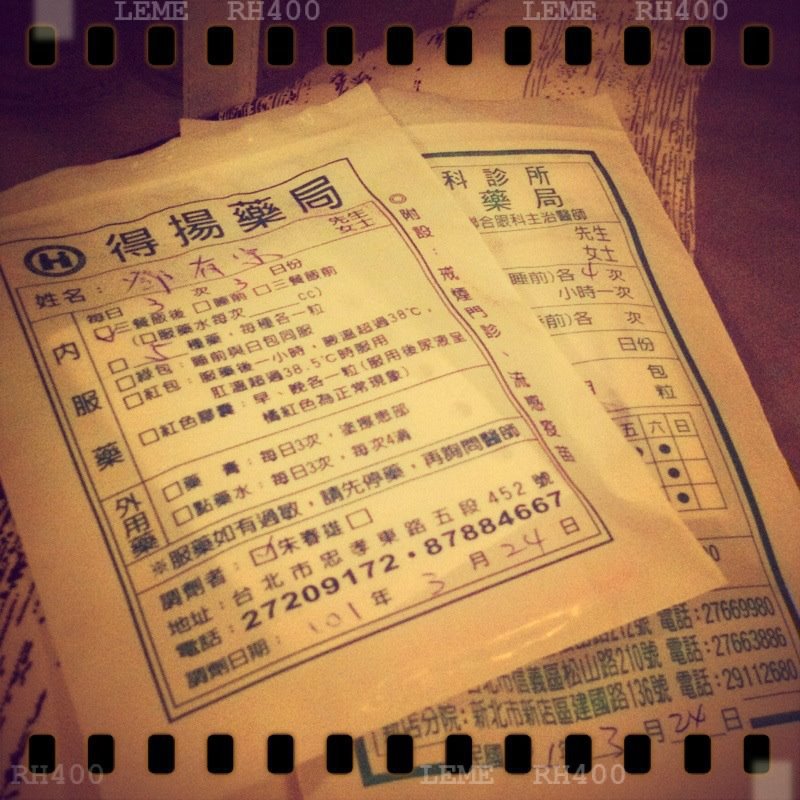 LEME RH400
LEME RH400
得揚藥局
先生
女士
姓名：
每日 3 次 3 日份
三餐飯後 □睡前 □三餐飯前
(□服藥水每次____cc)
□ 5 種藥，每種各一粒
□綠包：睡前與白包同服
□紅包：服藥後一小時，腋溫超過38℃，
肛溫超過38.5℃時服用
□紅色膠囊：早、晚各一粒(服用後尿液呈
橘紅色為正常現象)
內服藥
外用藥
□藥膏：每日3次，塗擦患部
□點藥水：每日3次，每次4滴
※服藥如有過敏，請先停藥，再詢問醫師
調劑者：☑朱春雄□
地址：台北市忠孝東路五段452號
電話：27209172・87884667
調劑日期：101年3月24日
◎附設：戒煙門診、流感疫苗
科診所
藥局
聯合眼科主治醫師
先生
女士
睡前)各4次
小時一次
前)各 次
日份
包
粒
五 六 日
212號 電話：27669980
台北市信義區松山路210號 電話：27663886
分院：新北市新店區建國路136號 電話：29112680
3月24日
RH400 LEME RH400